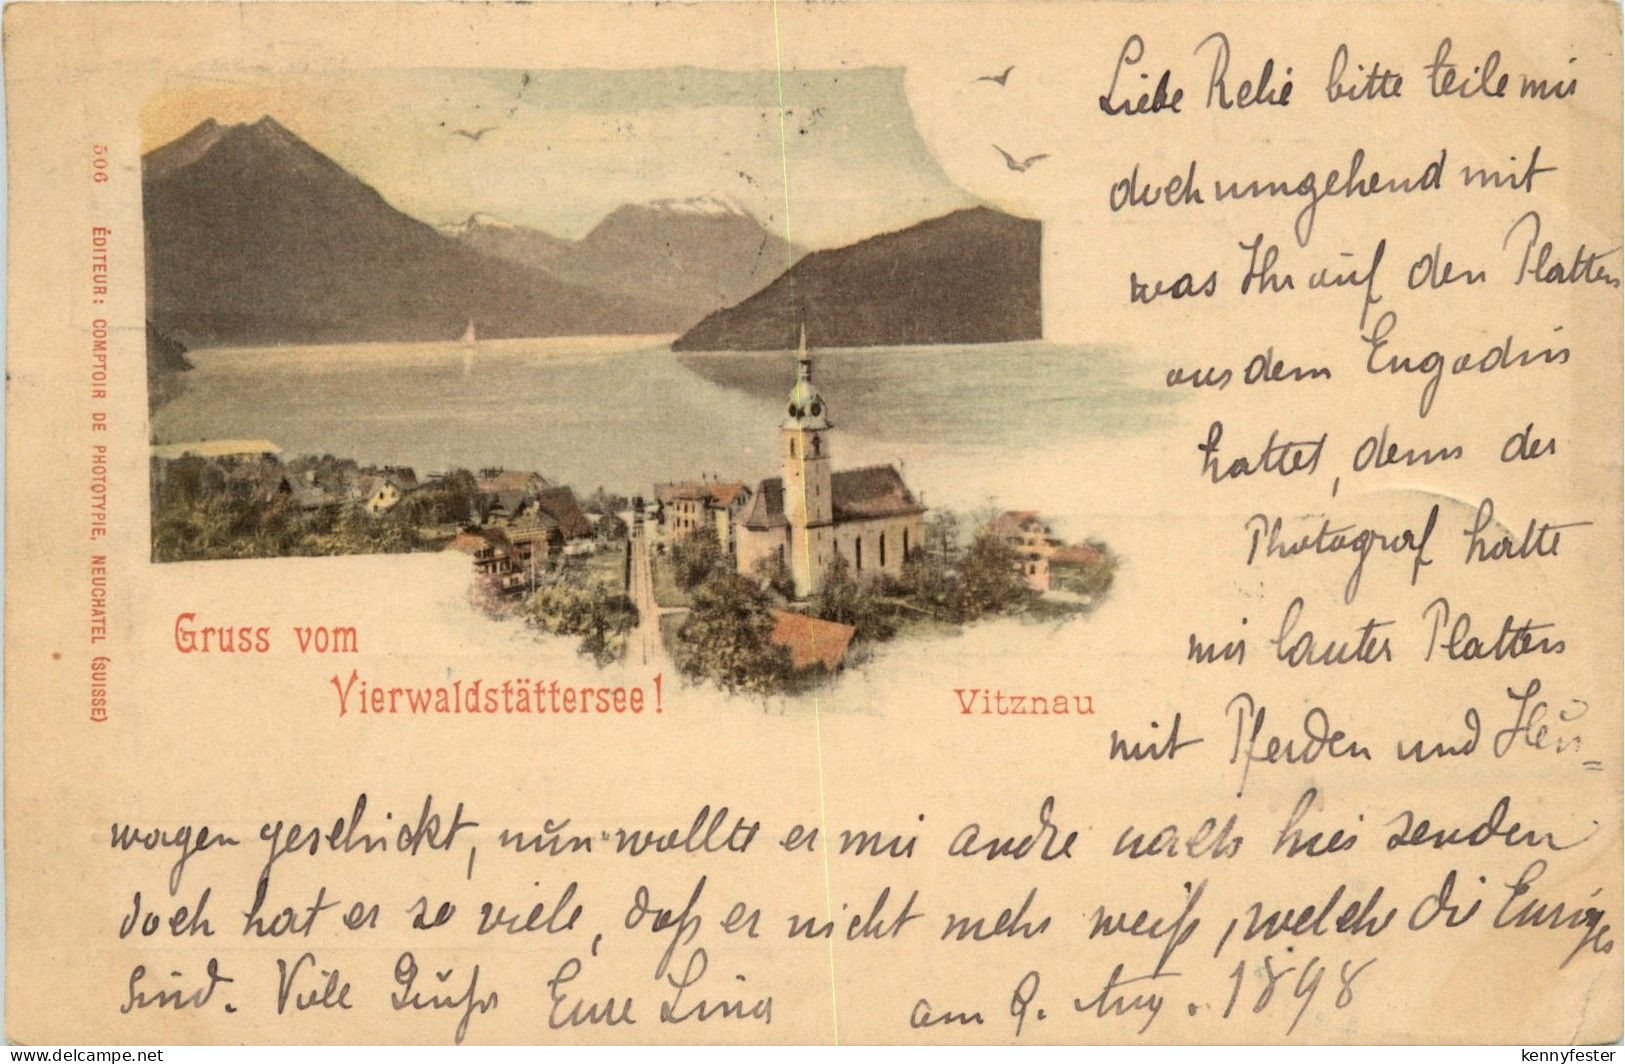 Liebe Relie bitte teile mir
doch umgehend mit
was Ihr auf den Platten
aus dem Engadin
hattet, denn der
Photograf hatte
mir lauter Platten
mit Pferden und Heu=
wagen geschickt, nun wollte er mir andre nach hier senden
doch hat er so viele, daß er nicht mehr weiß, welche die Eurigen
sind. Viele Grüße Eure Lina am 9. Aug. 1898
506 ÉDITEUR: COMPTOIR DE PHOTOTYPIE, NEUCHATEL (SUISSE)
Gruss vom
Vierwaldstättersee!
Vitznau
delcampe.net
kennyfester